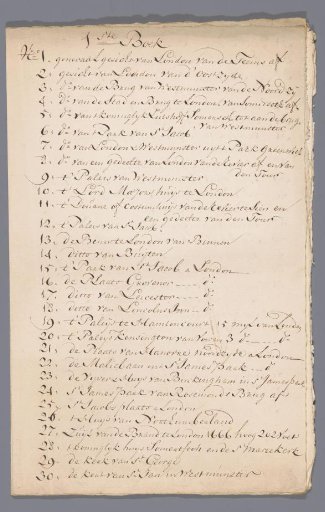 1ste Boek
No 1. generaal gesicht van London van de Teems af
2. gesicht van London van d' Oost zyde
3. do van de Brug van Westmunster van de Noord Zy
4. do van de Stad en Brug te London van Somerset af
5. do van't konniglyk Lusthof Somerset tot aan de brug
van Westmunster
6. do van't Park van St Jacob
7. do van London Westmunster uyt 't Park Greenwich
8. do van een gedeelte van London van de Rivier af en van
den Tour
9. t Paleis van Westmunster
10. t' Lord Mayors huys te London
11. t Douane of Costumhuys van de Rivier Kon en
een gedeelte van den Tour
12. t Palais van St Jacob
13. de Beurs te London van Binnen
14. ditto van Buyten
15. t Park van St Jacob a London
16. de Plaats Grosvenor ---- do
17. ditto van Leicester ---- do
18. ditto van Lincolns Inn -- do
19. t Paleis te Hamtoncourt 15 myl van London
20. t Paleis Kensington van Voren 3 do -- do
21. de Plaats van Hanover noorder a London
22. de Maliebaan in St James Park .. do
23. de Vyver & Huys van Buckingham in St James Park
24. St James Park van Rosemonds Brug af
25. St Jacobs plaats London
26. t Huys van Nottumberland
27. Zuyl van de Brand te London 1666 hoog 202 voet
28. t konninglyk huys Somersethoff en de St Mariekerk
29. de kerk van St George
30. de kerk van St Jan in Westmunster